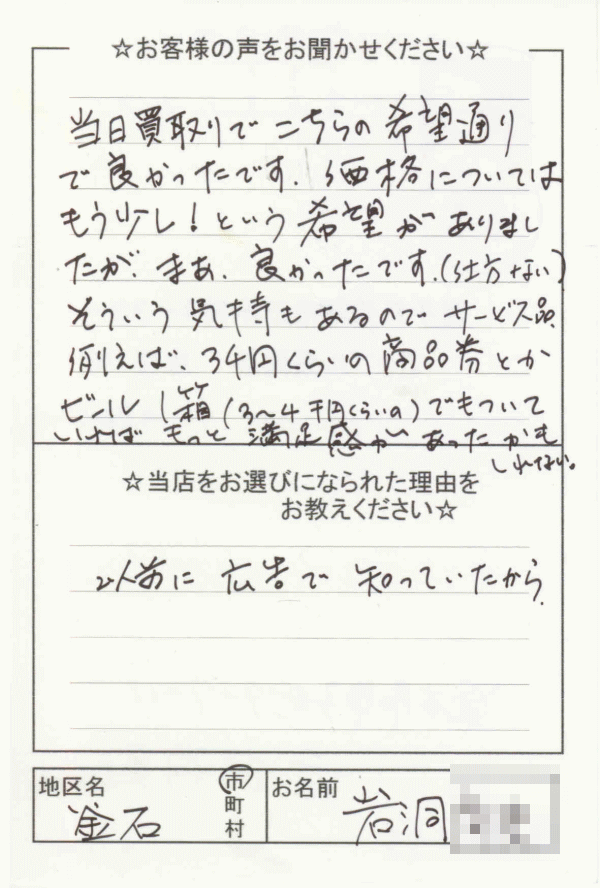 ☆お客様の声をお聞かせください☆
当日買取りでこちらの希望通り
で良かったです。価格については
もう少し！という希望がありまし
たが、まあ、良かったです。(仕方ない)
そういう気持もあるのでサービス品、
例えば、3千円くらいの商品券とか
ビール1箱(3〜4千円くらいの)でもついて
いればもっと満足感があったかも
しれない。
☆当店をお選びになられた理由を
お教えください☆
以前に広告で知っていたから、
地区名
金石
市
町
村
お名前
岩洞